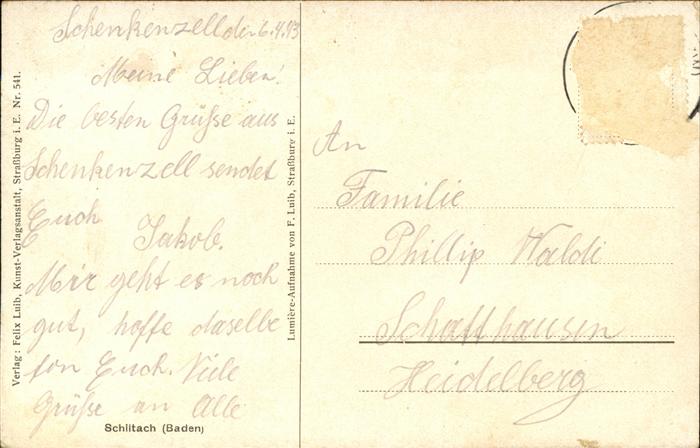 Schenkenzell den 6.4.43
Meine Lieben!
Die besten Grüße aus
Schenkenzell sendet
Euch
Jakob.
Mir geht es noch
gut, hoffe daselbe
fon Euch. Viele
Grüße an Alle
Schiltach (Baden)
Verlag: Felix Luib, Kunst-Verlagsanstalt, Straßburg i. E. Nr. 541.
Lumière-Aufnahme von F. Luib, Straßburg i. E.
An
Familie
Phillip Waldi
Schatthausen
Heidelberg